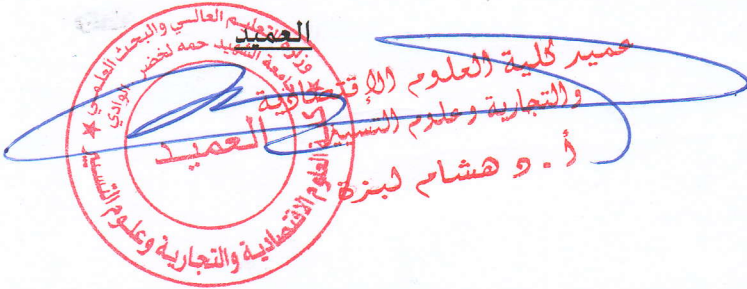 العميد
وزارة التعليم العالي والبحث العلمي
جامعة الشهيد حمه لخضر الوادي
العميد
العلوم الاقتصادية والتجارية وعلوم التسيير
عميد كلية العلوم الإقتصادية
والتجارية وعلوم التسيير
أ. د هشام لبزة